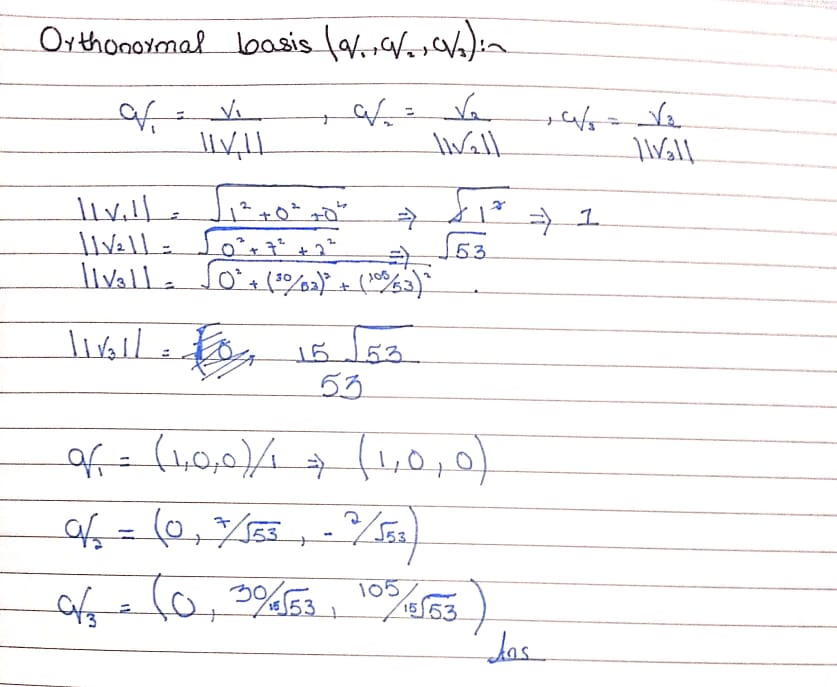 Orthonormal basis (q₁, q₂, q₃):~
q₁ = V₁/||V₁|| , q₂ = V₂/||V₂|| , q₃ = V₃/||V₃||
||V₁|| = √(1² + 0² + 0²) ⇒ √1² ⇒ 1
||V₂|| = √(0² + 7² + 2²) ⇒ √53
||V₃|| = √(0² + (30/53)² + (105/53)²) .
||V₃|| = 15√53/53
q₁ = (1,0,0)/1 ⇒ (1,0,0)
q₂ = (0, 7/√53, -2/√53)
q₃ = (0, 30/15√53, 105/15√53)
Ans